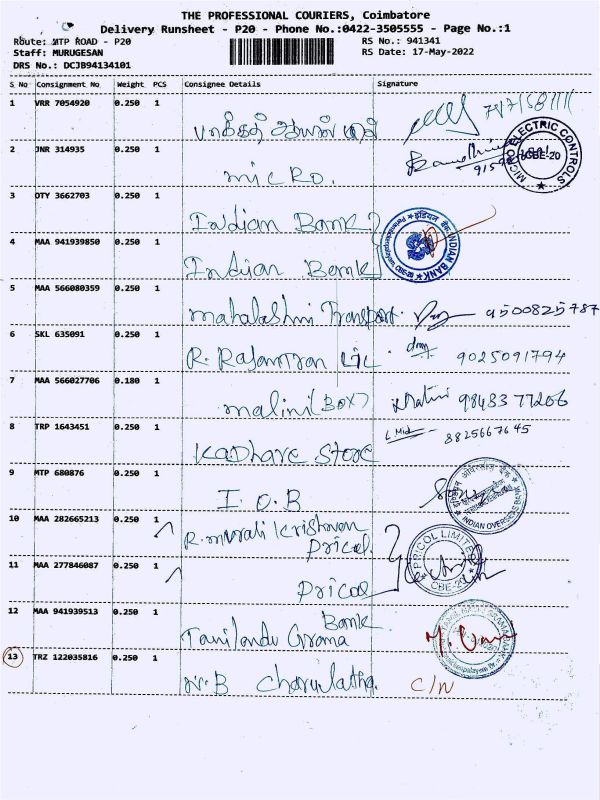 THE PROFESSIONAL COURIERS, Coimbatore
Delivery Runsheet - P20 - Phone No.:0422-3505555 - Page No.:1
Route: MTP ROAD - P20 RS No.: 941341
Staff: MURUGESAN RS Date: 17-May-2022
DRS No.: DCJB94134101
S No Consignment No Weight PCS Consignee Details Signature
1 VRR 7054920 0.250 1
2 JNR 314935 0.250 1 micro.
MICRO ELECTRIC CONTROLS CBE-20
3 OTY 3662703 0.250 1 Indian Bank
4 MAA 941939850 0.250 1 Indian Bank
इंडियन बैंक INDIAN BANK
5 MAA 566080359 0.250 1 mahalashmi Transport. 9500825787
6 SKL 635091 0.250 1 9025091794
7 MAA 566027706 0.180 1 malini (BOX) Malini 98433 77266
8 TRP 1643451 0.250 1 Kadhare Store 8825667645
9 MTP 680876 0.250 1 I.O.B
INDIAN OVERSEAS BANK
10 MAA 282665213 0.250 1 R.murali Krishnan
Pricol.
PRICOL LIMITED CBE-20
11 MAA 277846087 0.250 1 Pricol
12 MAA 941939513 0.250 1 Bank
Tamilandu Grama
13 TRZ 122035816 0.250 1 N.B Charulatha. C/N